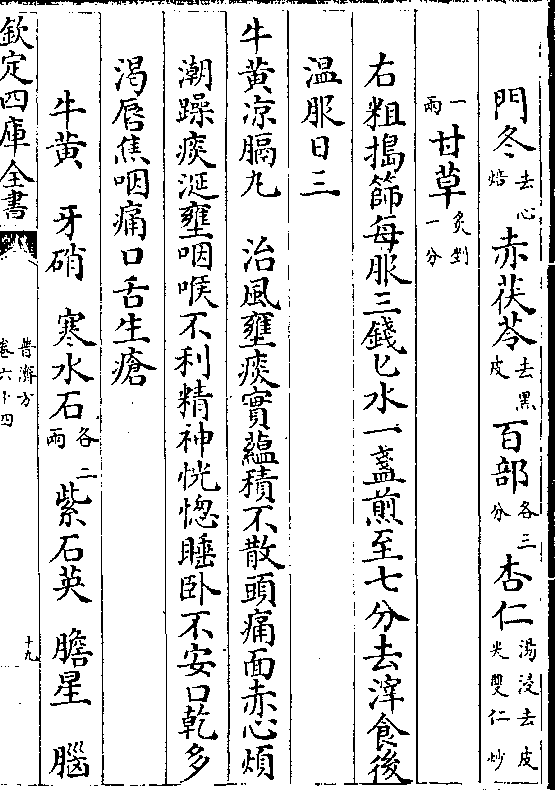 門冬去心焙 赤茯苓去黒皮 百部各三分 杏仁湯浸去皮尖雙仁炒
一兩 甘草炙剉一分
右粗搗篩每服三錢匕水一盞煎至七分去滓食後
温服日三
牛黄凉膈丸 治風壅痰實蘊積不散頭痛面赤心煩
潮躁痰涎壅咽喉不利精神恍惚睡卧不安口乾多
渴唇焦咽痛口舌生瘡
牛黄 牙硝 寒水石各二兩 紫石英 膽星 腦
欽定四庫全書
普濟方
卷六十四
十九